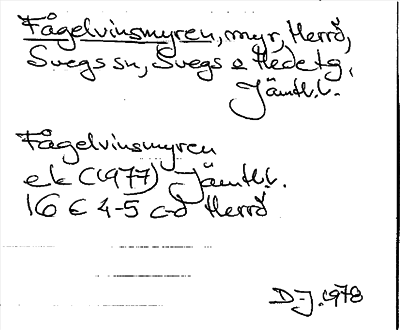 Fågelvinsmyren, myr, Herrö,
Svegs sn, Svegs o Hede tg,
Jämtl.l.
Fågelvinsmyren
ek (1977) Jämtl.l.
16 E 4-5 c-d Herrö
D-J. 1978